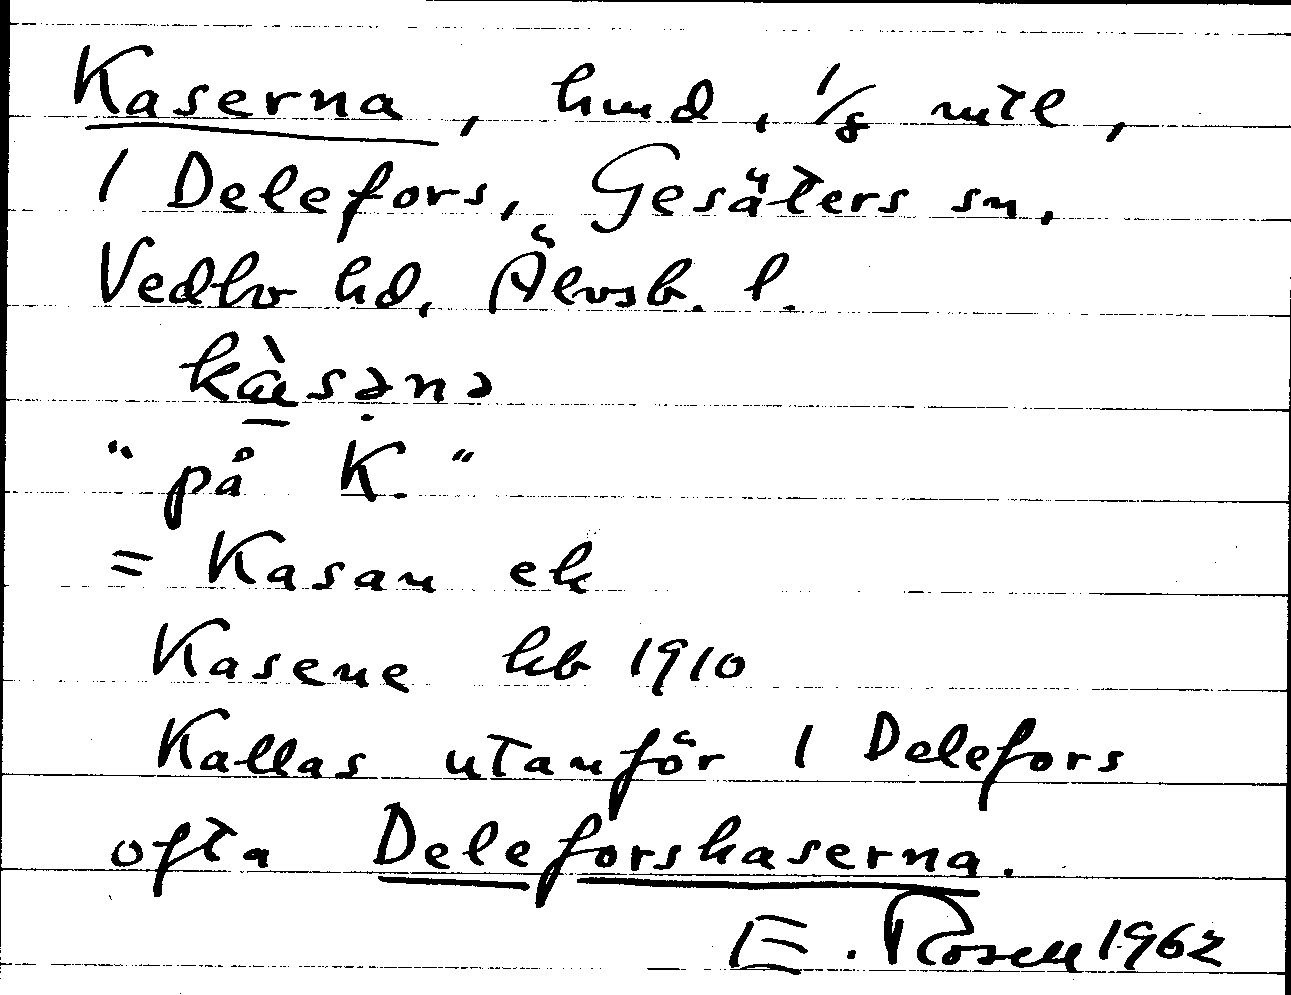 Kaserna, hmd, 1/8 mtl,
1 Delefors, Gesäters sn,
Vedbo hd, Älvsb. l.
kæ̀sənə
"på K."
= Kasan ek
Kasene kb 1910
Kallas utanför 1 Delefors
ofta Deleforskaserna.
E. Rosell 1962